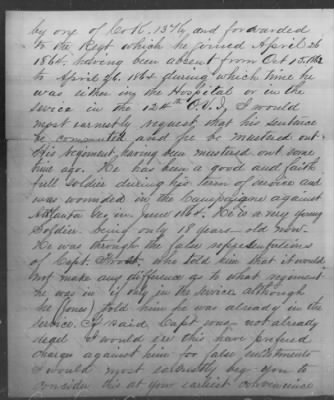 by one of Co K. 13 Ky and forwarded
to the Regt which he joined April 26
1864. having been absent from Oct 15. 1862
to April 26. 1864 during which time he
was either in the Hospital or in the
service in the 124th O.V.I, I would
most earnestly request, that his sentence
be commuted and he be mustered out
His regiment, having been mustered out some
time ago. He has been a good and faith
full soldier during his term of service and
was wounded in the Campaigne against
Atlanta Geo in June 1864. He is a very young
Soldier being only 18 years old now.
He was through the false representations
of Capt. who told him that it would
not make any difference as to what regiment
he was in if only in the service. although
he (Jones) told him he was already in the
service. If said Capt was not already
I would see this have prefered
charges against him for false enlistments
I would most earnestly beg you to
consider this at your earliest convenience